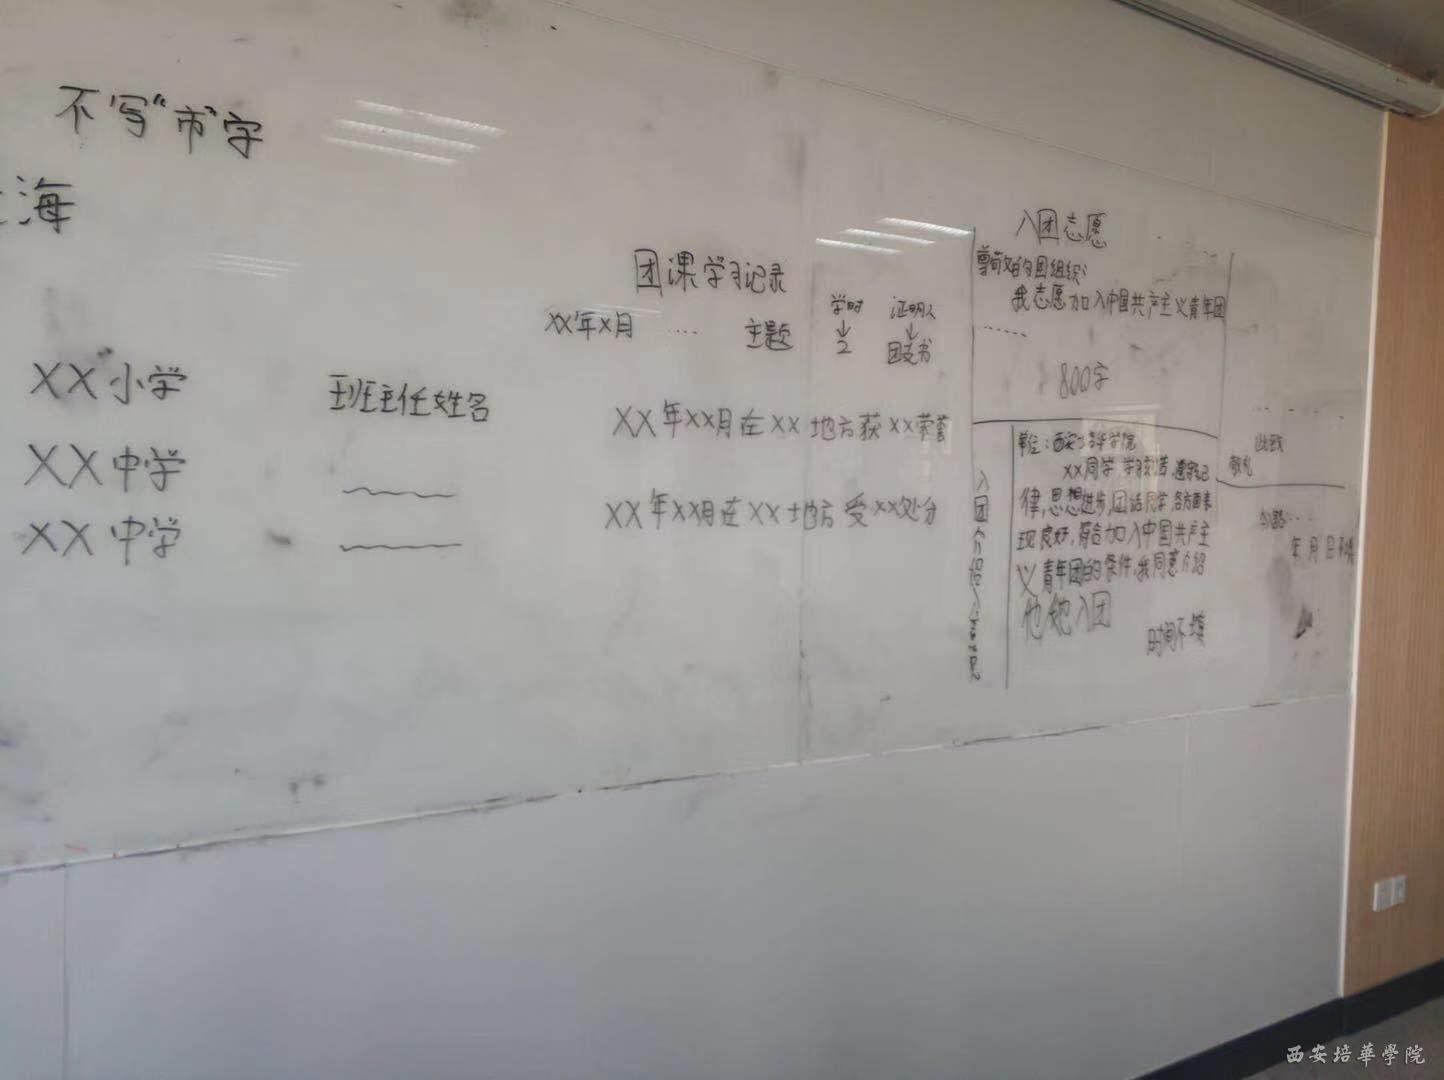 不写"市"字
海
XX小学
XX中学
XX中学
班主任姓名
团课学习记录
XX年X月 …… 主题
学时
↓
2
证明人
↓
团支书
XX年XX月在XX地方获XX荣誉
XX年XX月在XX地方受XX处分
入团志愿
尊敬的团组织:
我志愿加入中国共产主义青年团
……
800字
此致
敬礼
年 月 日
入团介绍人
单位:西安培华学院
XX同学,学习刻苦,遵守纪
律,思想进步,团结同学,各方面表
现良好,符合加入中国共产主
义青年团的条件,我同意介绍
他/她入团
时间不填
西安培華學院